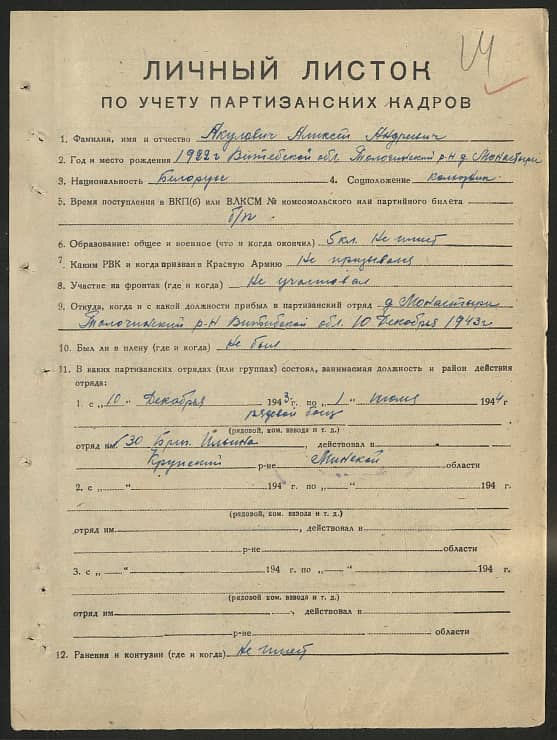 ЛИЧНЫЙ ЛИСТОК
ПО УЧЕТУ ПАРТИЗАНСКИХ КАДРОВ
1. Фамилия, имя и отчество Акулович Алексей Андреевич
2. Год и место рождения 1922 г Витебской обл. Толочинский р-н д. Монастыри
3. Национальность Белорус 4. Соцположение колхозник
5. Время поступления в ВКП(б) или ВЛКСМ № комсомольского или партийного билета
б/п
6. Образование: общее и военное (что и когда окончил) 5 кл. Не имеет
7. Каким РВК и когда призван в Красную Армию Не призывался
8. Участие на фронтах (где и когда) Не участвовал
9. Откуда, когда и с какой должности прибыл в партизанский отряд д. Монастыри
Толочинский р-н Витебской обл. 10 Декабря 1943 г
10. Был ли в плену (где и когда) Не был
11. В каких партизанских отрядах (или группах) состоял, занимаемая должность и район действия
отряда:
1. с „10“ Декабря 1943 г. по „1“ июля 1944 г
рядовой боец
(рядовой, ком. взвода и т. д.)
отряд им. № 30 Бриг. Ильина, действовал в
Крупский р-не Минской области
2. с „ “ 194 г. по „ “ 194 г.
(рядовой, ком. взвода и т. д.)
отряд им. , действовал в
р-не области
3. с „ “ 194 г. по „ “ 194 г.
(рядовой, ком. взвода и т. д.)
отряд им. , действовал в
р-не области
12. Ранения и контузии (где и когда) Не имеет